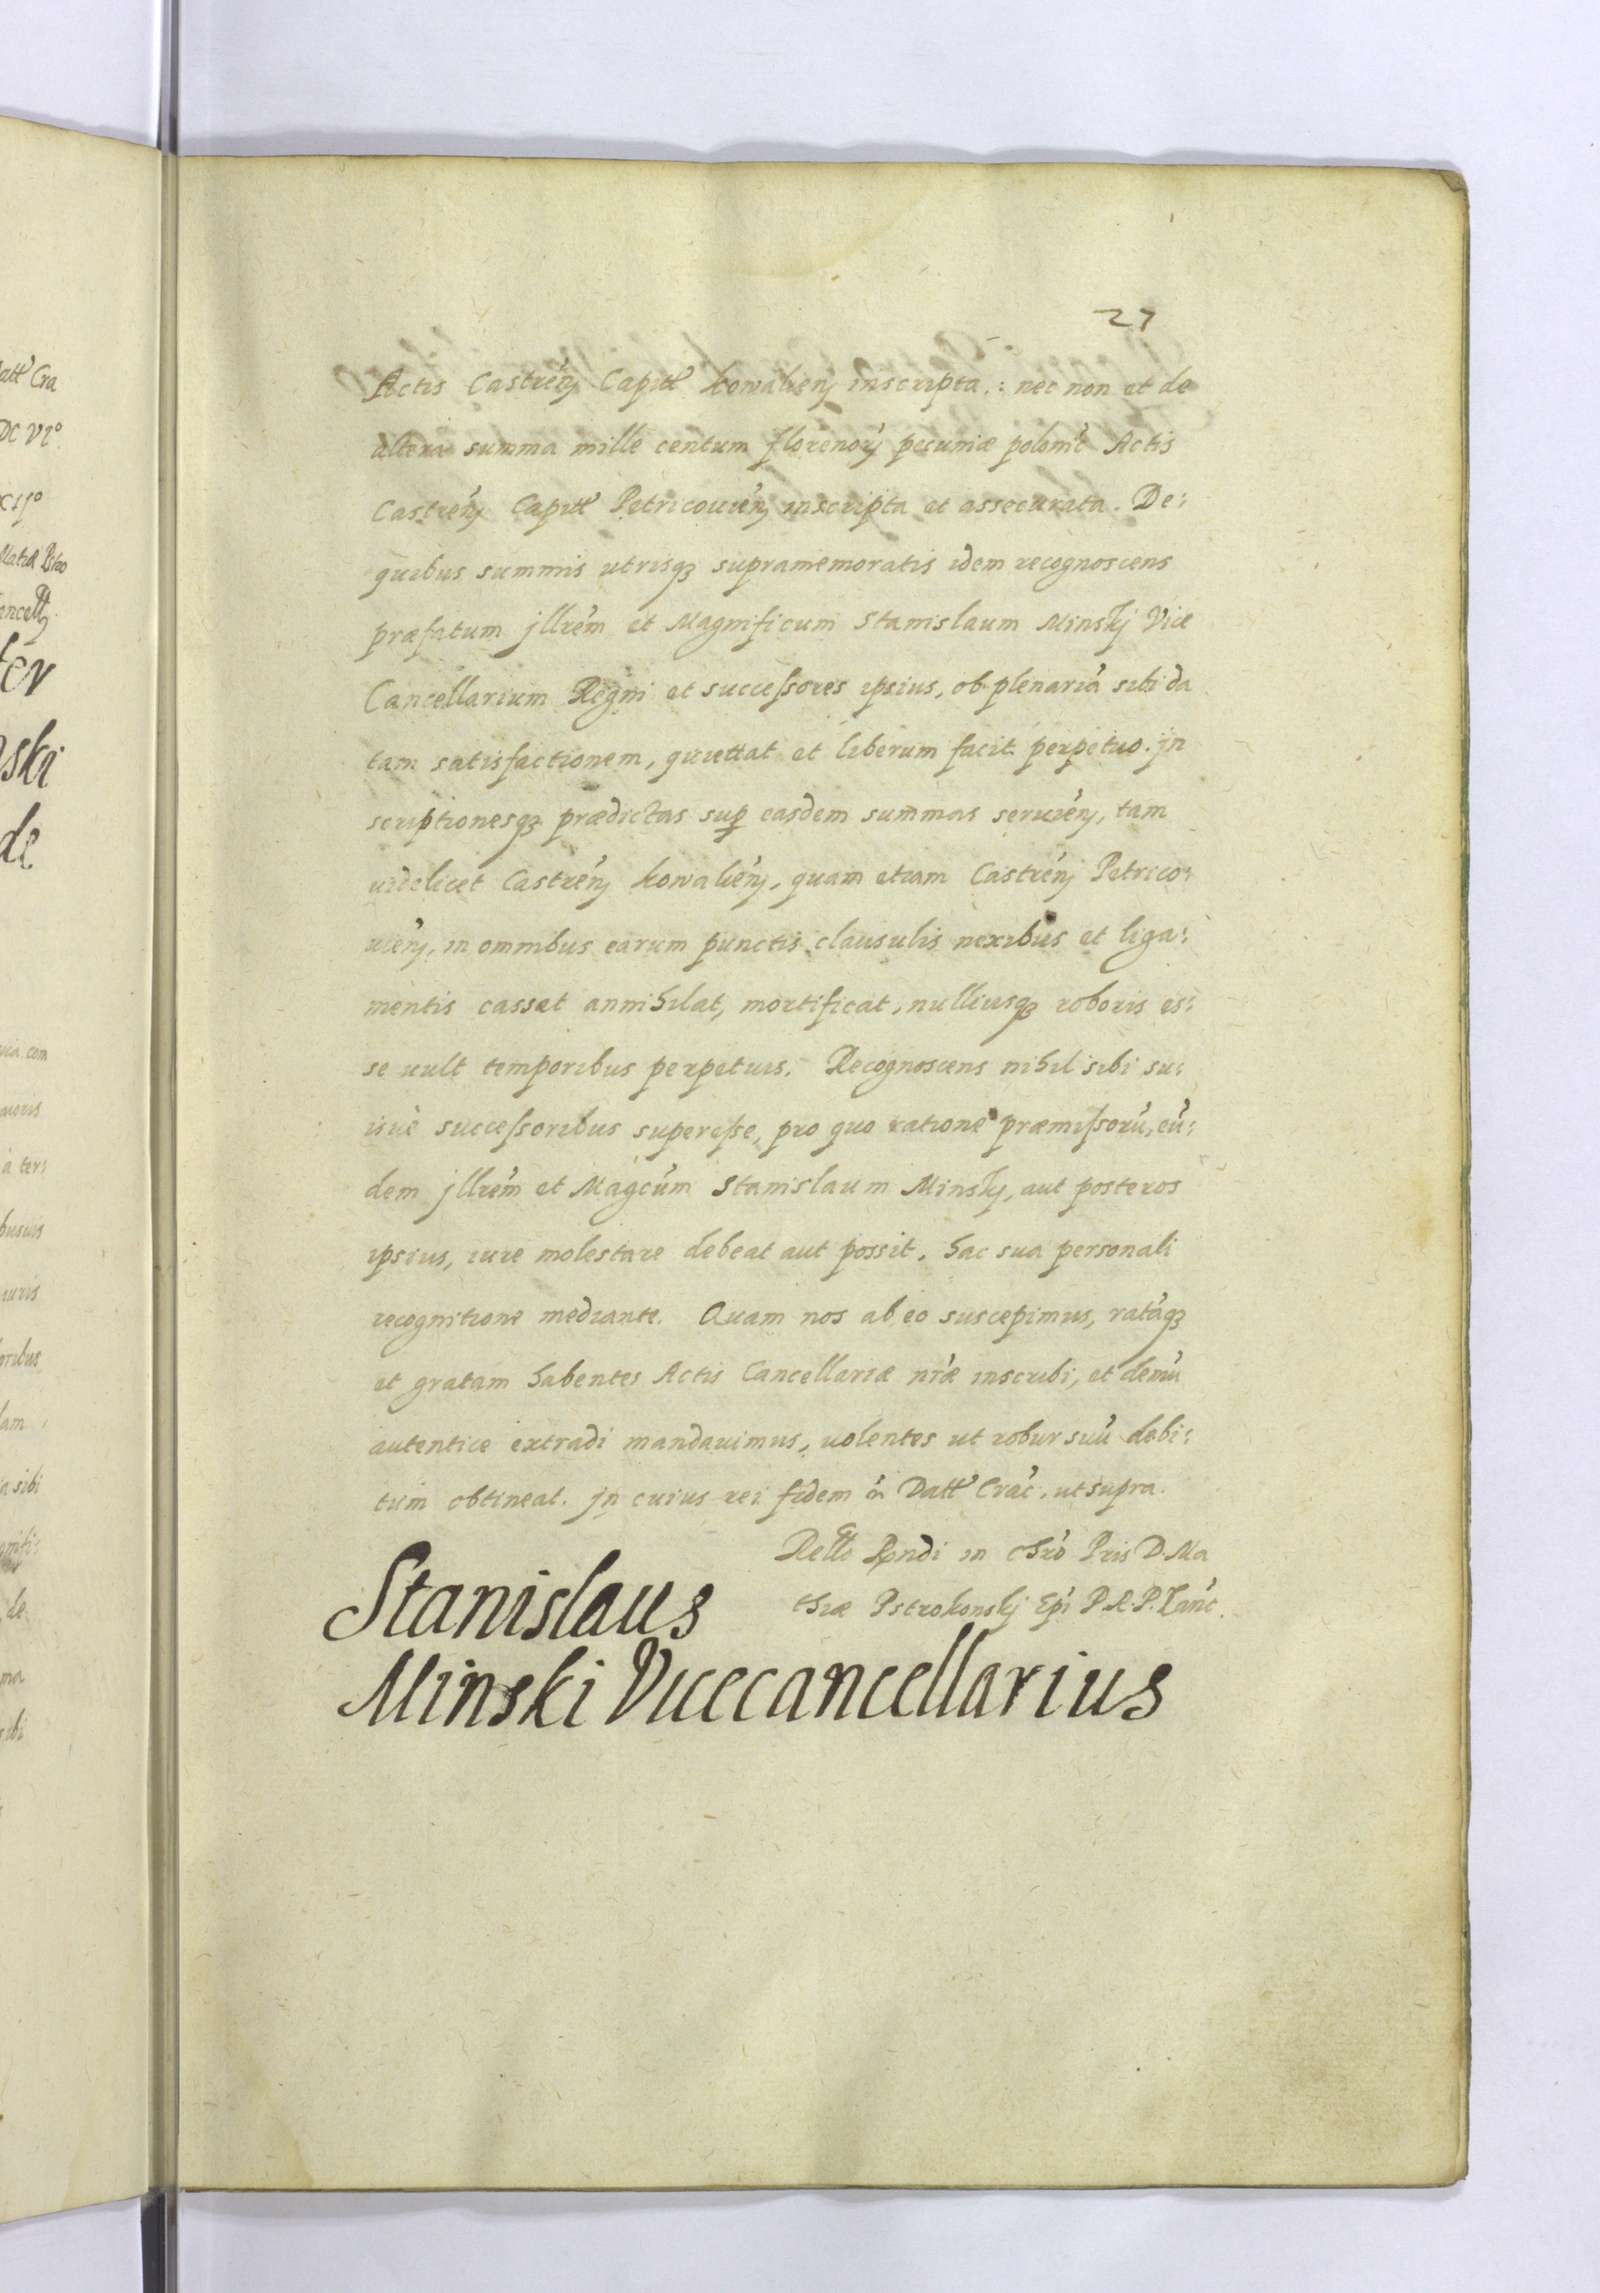 27
Actis Castreñ Capitł kowalieñ inscripta: nec non et de
altera summa mille centum florenorũ pecuniæ polonic̃ Actis
Castreñ Capitł Petricouieñ inscripta et assecurata. De:
quibus summis utrisqꝫ supramemoratis idem recognoscens
præfatum jllrẽm et Magnificum Stanislaum Minskj Vice
Cancellarium Regni et successores ipsius, ob plenariã sibi da
tam satisfactionem, quiettat et liberum facit perpetuo. jn
scriptionesqꝫ prædictas suꝑ easdem summas seruieñ, tam
uidelicet Castreñ kowalieñ, quam etiam Castreñ Petrico:
uieñ, in omnibus earum punctis clausulis nexibus et liga:
mentis cassat annihilat, mortificat, nulliusqꝫ roboris es:
se uult temporibus perpetuis. Recognoscens nihil sibi su:
isuè successoribus superesse, pro quo ratione præmissorũ, eũ:
dem jllrẽm et Magcũm Stanislaum Minskj, aut posteros
ipsius, iure molestare debeat aut possit, hac sua personali
recognitione mediante. Quam nos ab eo suscepimus, ratãqꝫ
et gratam habentes Actis Cancellariæ nr̃æ inscribi, et demũ
autentice extradi mandauimus, uolentes ut robur suũ debi:
tum obtineat. jn cuius rei fidem &̃ Datł Crac̃. ut supra.
Retło Rndi in Chrõ Pris D. Ma
thiæ Pstrokonskj Epĩ P. R. P. Canc̃.
Stanislaus
Minski Vicecancellarius